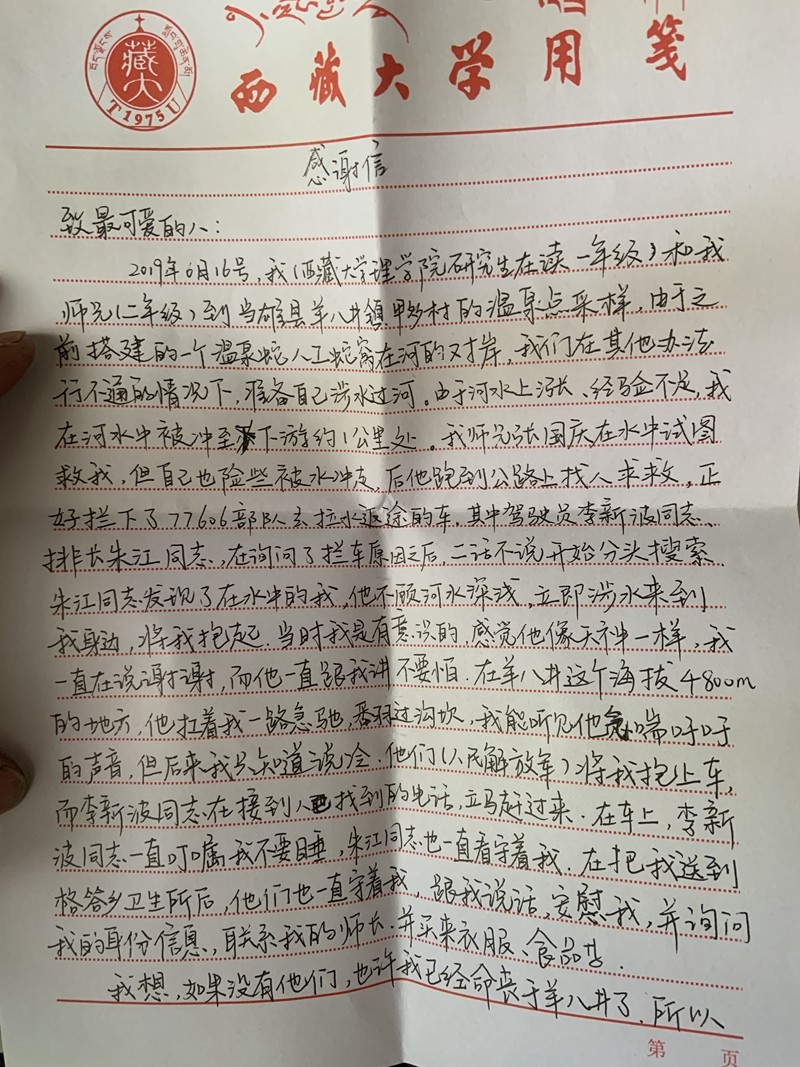 西藏大学用笺
藏大
T1975U
感谢信
致最可爱的人：
2019年6月16号，我(西藏大学理学院研究生在读一年级)和我
师兄(二年级)到当雄县羊八井镇甲多村的温泉点采样，由于之
前搭建的一个温泉蛇人工蛇窝在河的对岸，我们在其他办法
行不通的情况下，准备自己涉水过河。由于河水上涨、经验不足，我
在河水中被冲至下游约1公里处。我师兄张国庆在水中试图
救我，但自己也险些被水冲走，后他跑到公路上找人求救。正
好拦下了77606部队去拉水返途的车，其中驾驶员李新波同志、
排长朱江同志，在询问了拦车原因之后，二话不说开始分头搜索
朱江同志发现了在水中的我，他不顾河水深浅，立即涉水来到
我身边，将我抱起。当时我是有意识的，感觉他像天神一样，我
一直在说谢谢，而他一直跟我讲不要怕。在羊八井这个海拔4800m
的地方，他扛着我一路急驰，翻过沟坎，我能听见他喘吁吁
的声音，但后来我只知道说冷。他们(人民解放军)将我抱上车，
而李新波同志在接到人已找到的电话，立马赶过来。在车上，李新
波同志一直叮嘱我不要睡，朱江同志也一直看守着我。在把我送到
格答乡卫生所后，他们也一直守着我，跟我说话，安慰我，并询问
我的身份信息，联系我的师长。并买来衣服、食品等。
我想，如果没有他们，也许我已经命丧于羊八井了。所以
第 页